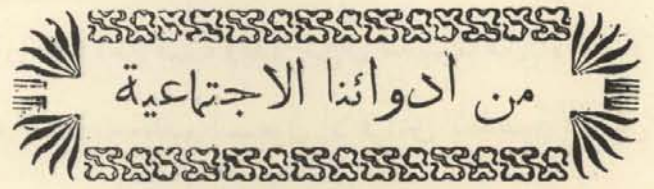 من ادوائنا الاجتماعية